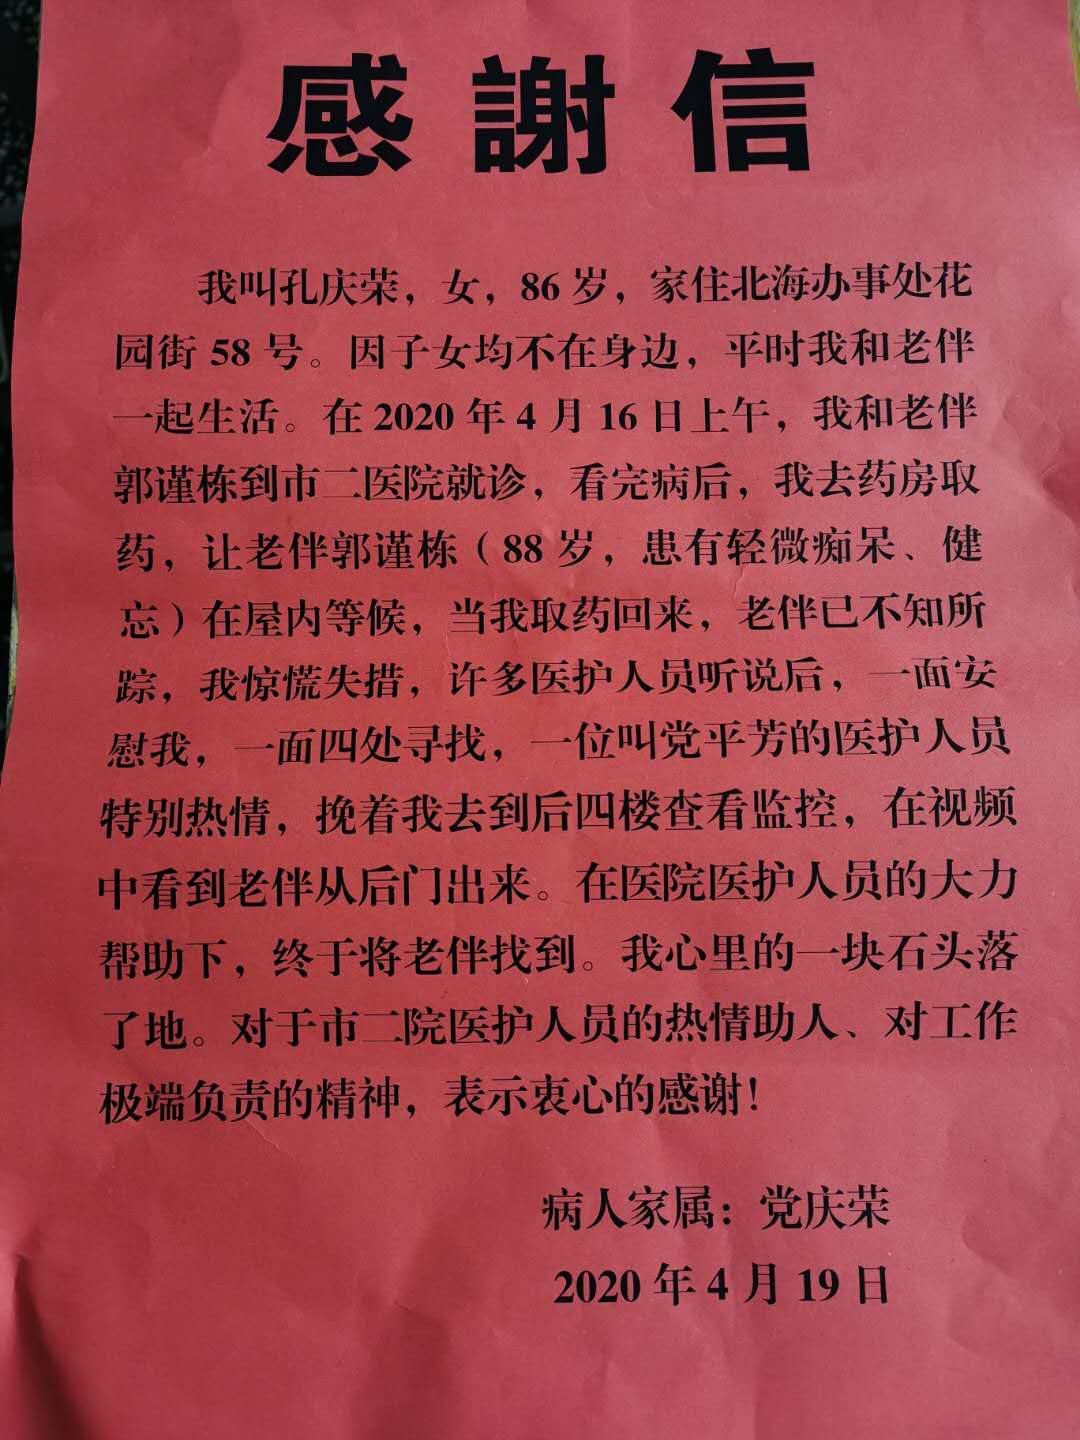 感謝信
我叫孔庆荣，女，86岁，家住北海办事处花
园街 58 号。因子女均不在身边，平时我和老伴
一起生活。在 2020 年 4 月 16 日上午，我和老伴
郭谨栋到市二医院就诊，看完病后，我去药房取
药，让老伴郭谨栋（88 岁，患有轻微痴呆、健
忘）在屋内等候，当我取药回来，老伴已不知所
踪，我惊慌失措，许多医护人员听说后，一面安
慰我，一面四处寻找，一位叫党平芳的医护人员
特别热情，挽着我去到后四楼查看监控，在视频
中看到老伴从后门出来。在医院医护人员的大力
帮助下，终于将老伴找到。我心里的一块石头落
了地。对于市二院医护人员的热情助人、对工作
极端负责的精神，表示衷心的感谢！
病人家属：党庆荣
2020 年 4 月 19 日